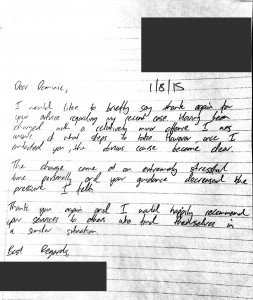 1/8/15
Dear Dominic,
I would like to briefly say thank again for
your advice regarding my recent case. Having been
charged with a relatively minor offence I was
unsure of what steps to take. However once I
contacted you, the obvious course became clear.
The charge came at an extremely stressful
time personally and your guidance decreased the
pressure I felt.
Thank you again and I would happily recommend
your services to others who find themselves in
a similar situation.
Best Regards,